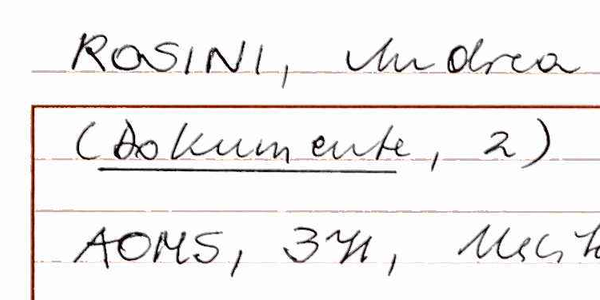 ROSINI, Andrea
(Dokumente, 2)
AOMS,